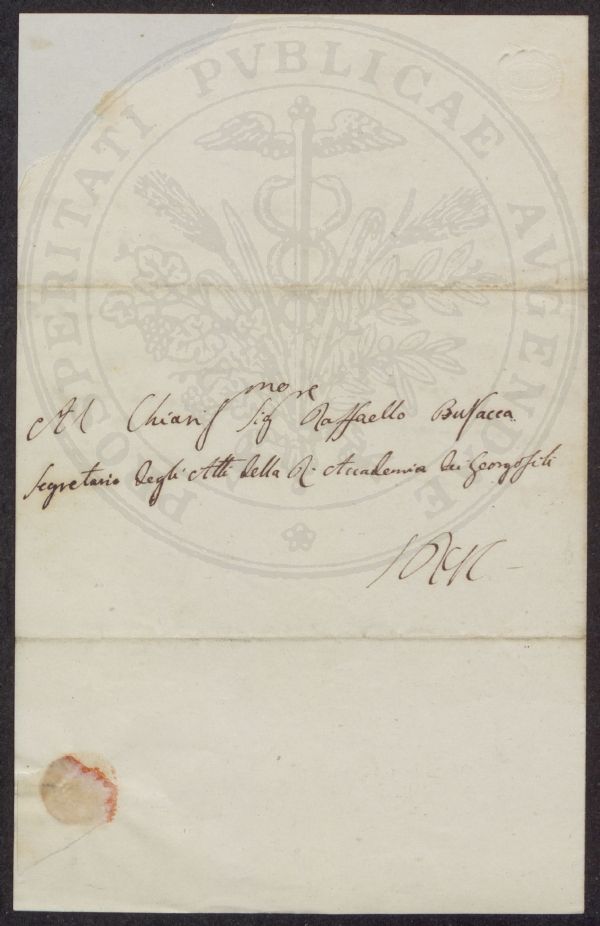 PROSPERITATI PVBLICAE AVGENDAE
Al Chiaris Sig.nore Raffaello Busacca
Segretario degli Atti della R. Accademia dei Georgofili